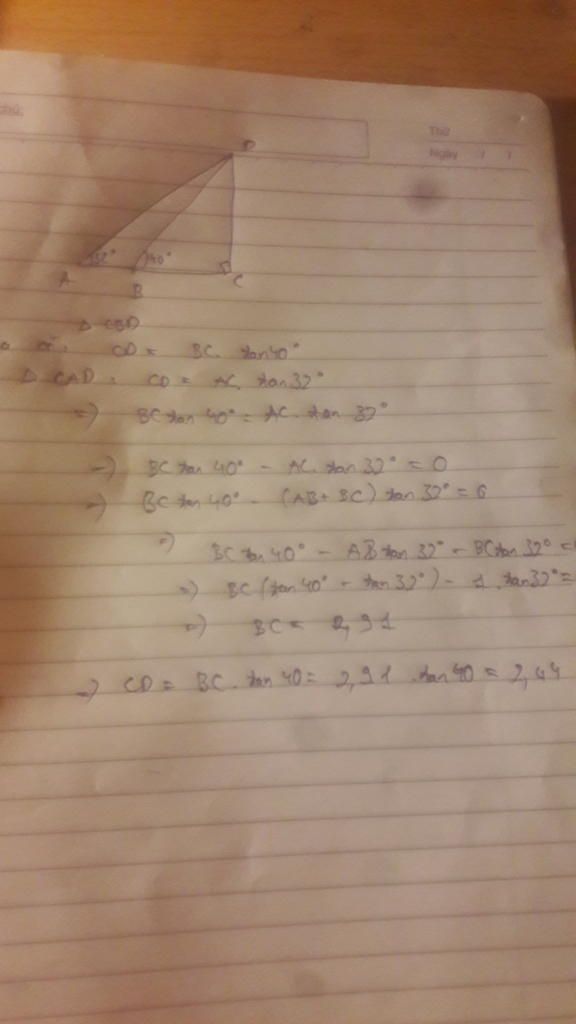 Thứ
Ngày / /
D
32° 40°
A B C
Δ CBD
CD = BC. tan40°
Δ CAD: CD = AC. tan32°
=) BC tan 40° = AC. tan 32°
=) BC tan 40° - AC. tan 32° = 0
=) BC tan 40° - (AB + BC) tan 32° = 0
=) BC tan 40° - AB tan 32° - BC tan 32° =
=) BC (tan 40° - tan 32°) - 1. tan32° =
=) BC = 2,91
=) CD = BC. tan 40 = 2,91 . tan 40 = 2,44